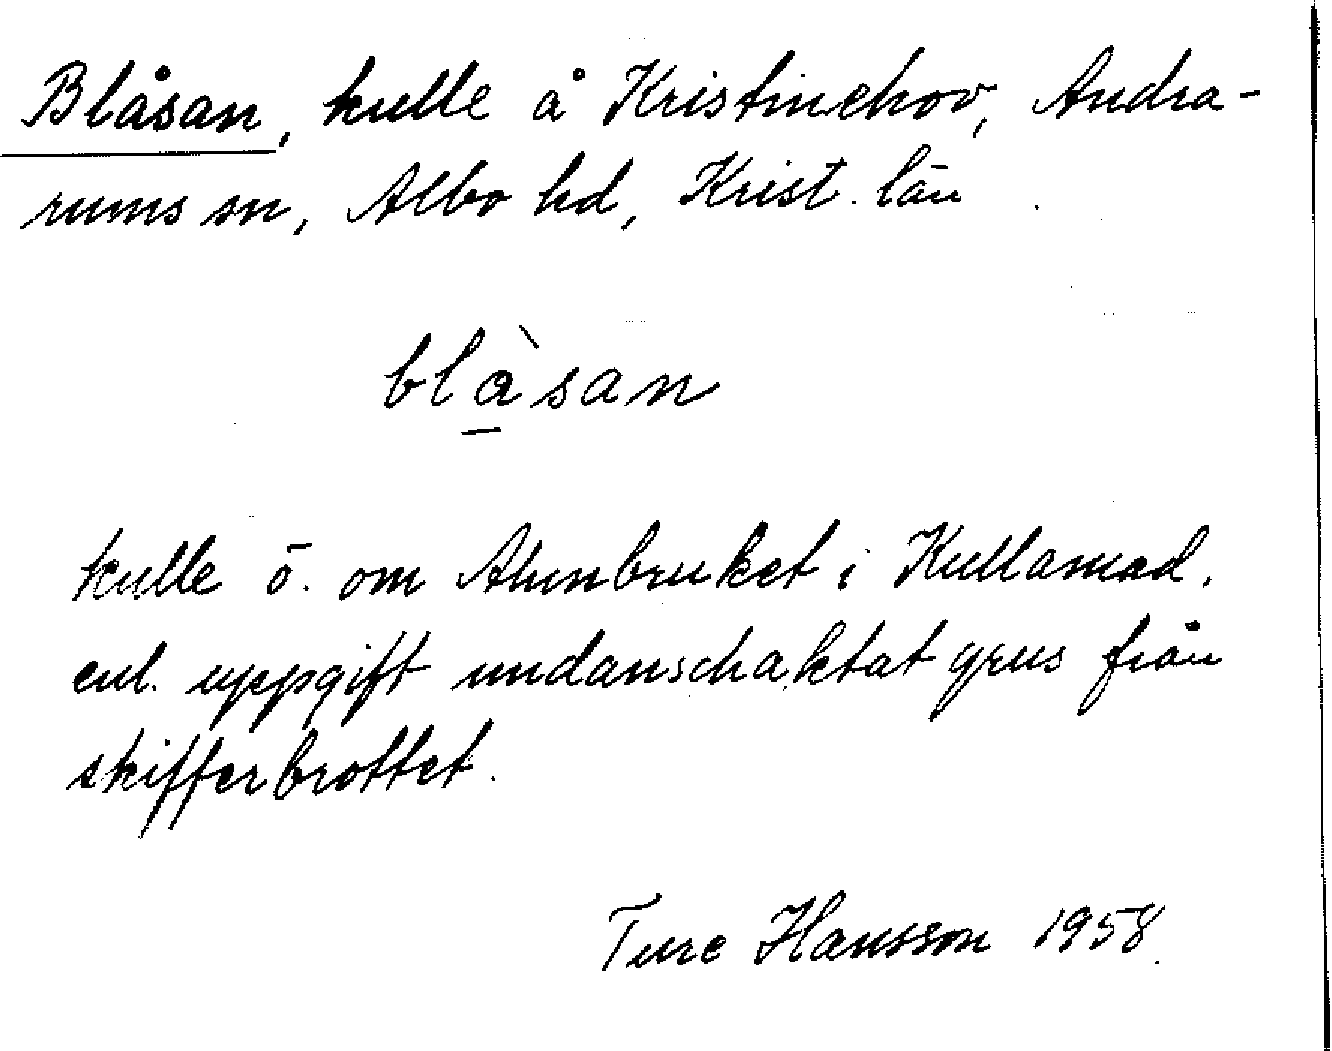 Blåsan, kulle å Kristinehov, Andra-
rums sn, Albo hd, Krist. län
blàsan
kulle ö. om Alunbruket i Kullamad.
enl. uppgift undanschaktat grus från
skifferbrottet.
Ture Hansson 1958.